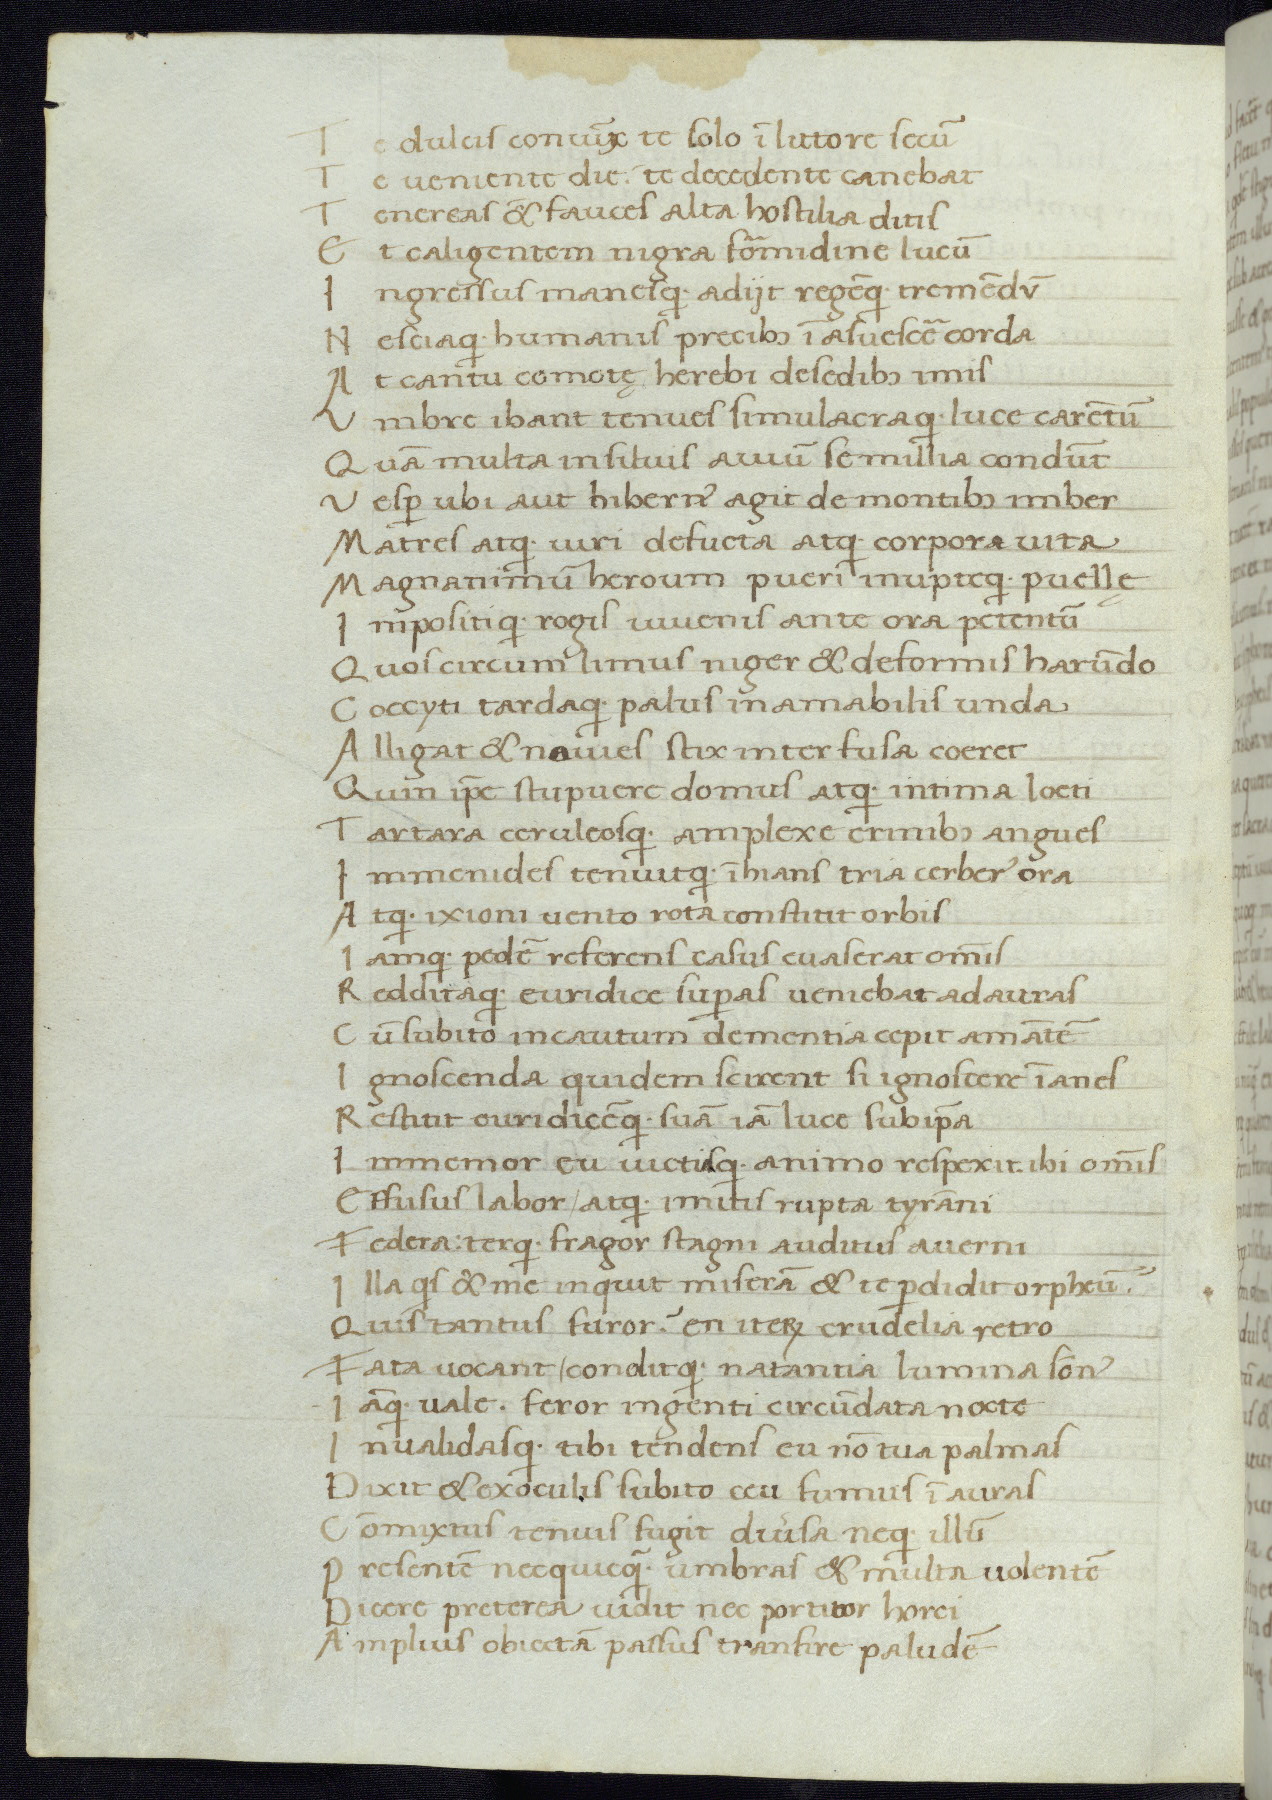 Te dulcis conuiῡx te solo ī luttore secū
Te ueniente die. te decedente canebat
Tenereas & fauces alta hostilia ditis
Et caligentem nigra fōmidine lucū
Ingressus manesq· adijt regēq· tremēdv̄
Nesciaq· humanis precibꝫ īasuescē corda
At cantu comotę herebi desedibꝫ imis
Vmbre ibant tenues simulacraq· luce carētū
Quā multa insiluis auiū se millia condūt
Vesꝑ ubi aut hibernꝰ agit de montibꝫ imber
Matres atq· uiri defucta atq· corpora uita
Magnanimū heroum pueri inupteq· puellę
Impositiq· rogis iuuenis ante ora petentū
Quos circum limus niger & deformis harūdo
Coccyti tardaq· palus inamabilis unda
Alligat & nouies stix interfusa coeret
Quin ip̄e stupuere domus atq· intima loeti
Tartara ceruleosq· amplexe crinibꝫ angues
Immenides tenuitq· īhians tria cerberꝰ ora
Atq· ixioni uento rota constitit orbis
Iamq· pedē referens casus euaserat om̄is
Redditaq· euridice suꝑas ueniebat ad auras
Cū subito incautum dementia cepit amātē
Ignoscenda quidem scirent si ignoscere īanes
Restitit euridicēq· suā iā luce sub ip̄a
Immemor eu uictusq· animo respexit. ibi om̄is
Effusus labor / atq· imitis rupta tyrāni
Federa: terq· fragor stagni auditus auerni
Illa q̄s & me inquit miserā & te ꝑdidit orpheū.
Quis tantus furor? en iteꝝ crudelia retro
Fata uocant / conditq· natantia lumina sōnꝰ
Iāq· uale. feror ingenti circūdata nocte
Inualidasq· tibi tendens eu nō tua palmas
Dixit & ex oculis subito ceu fumus ī auras
Cōmixtus tenuis fugit diu͛sa neq· illū
Presentē necquicq̄· umbras & multa uolentē
Dicere preterea uidit nec portitor horci
Amplius obiectā passus transire paludē